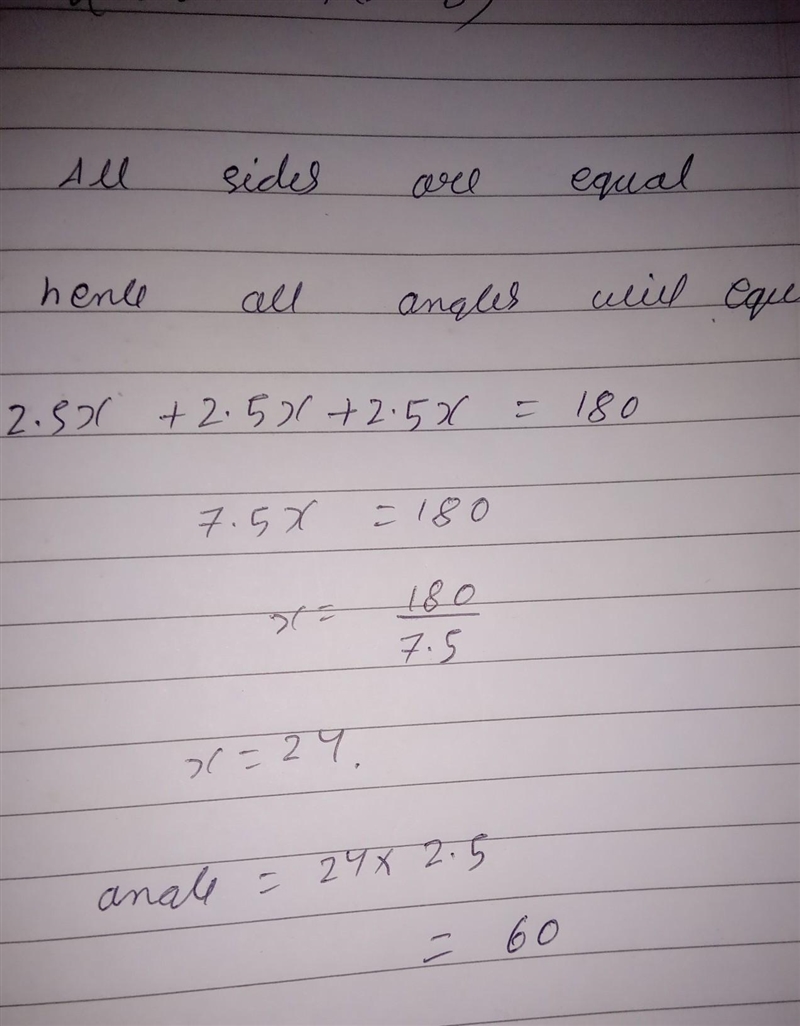 All sides are equal
hence all angles will equ
2.5x + 2.5x + 2.5x = 180
7.5x = 180
x = 180/7.5
x = 24.
angle = 24 x 2.5
= 60